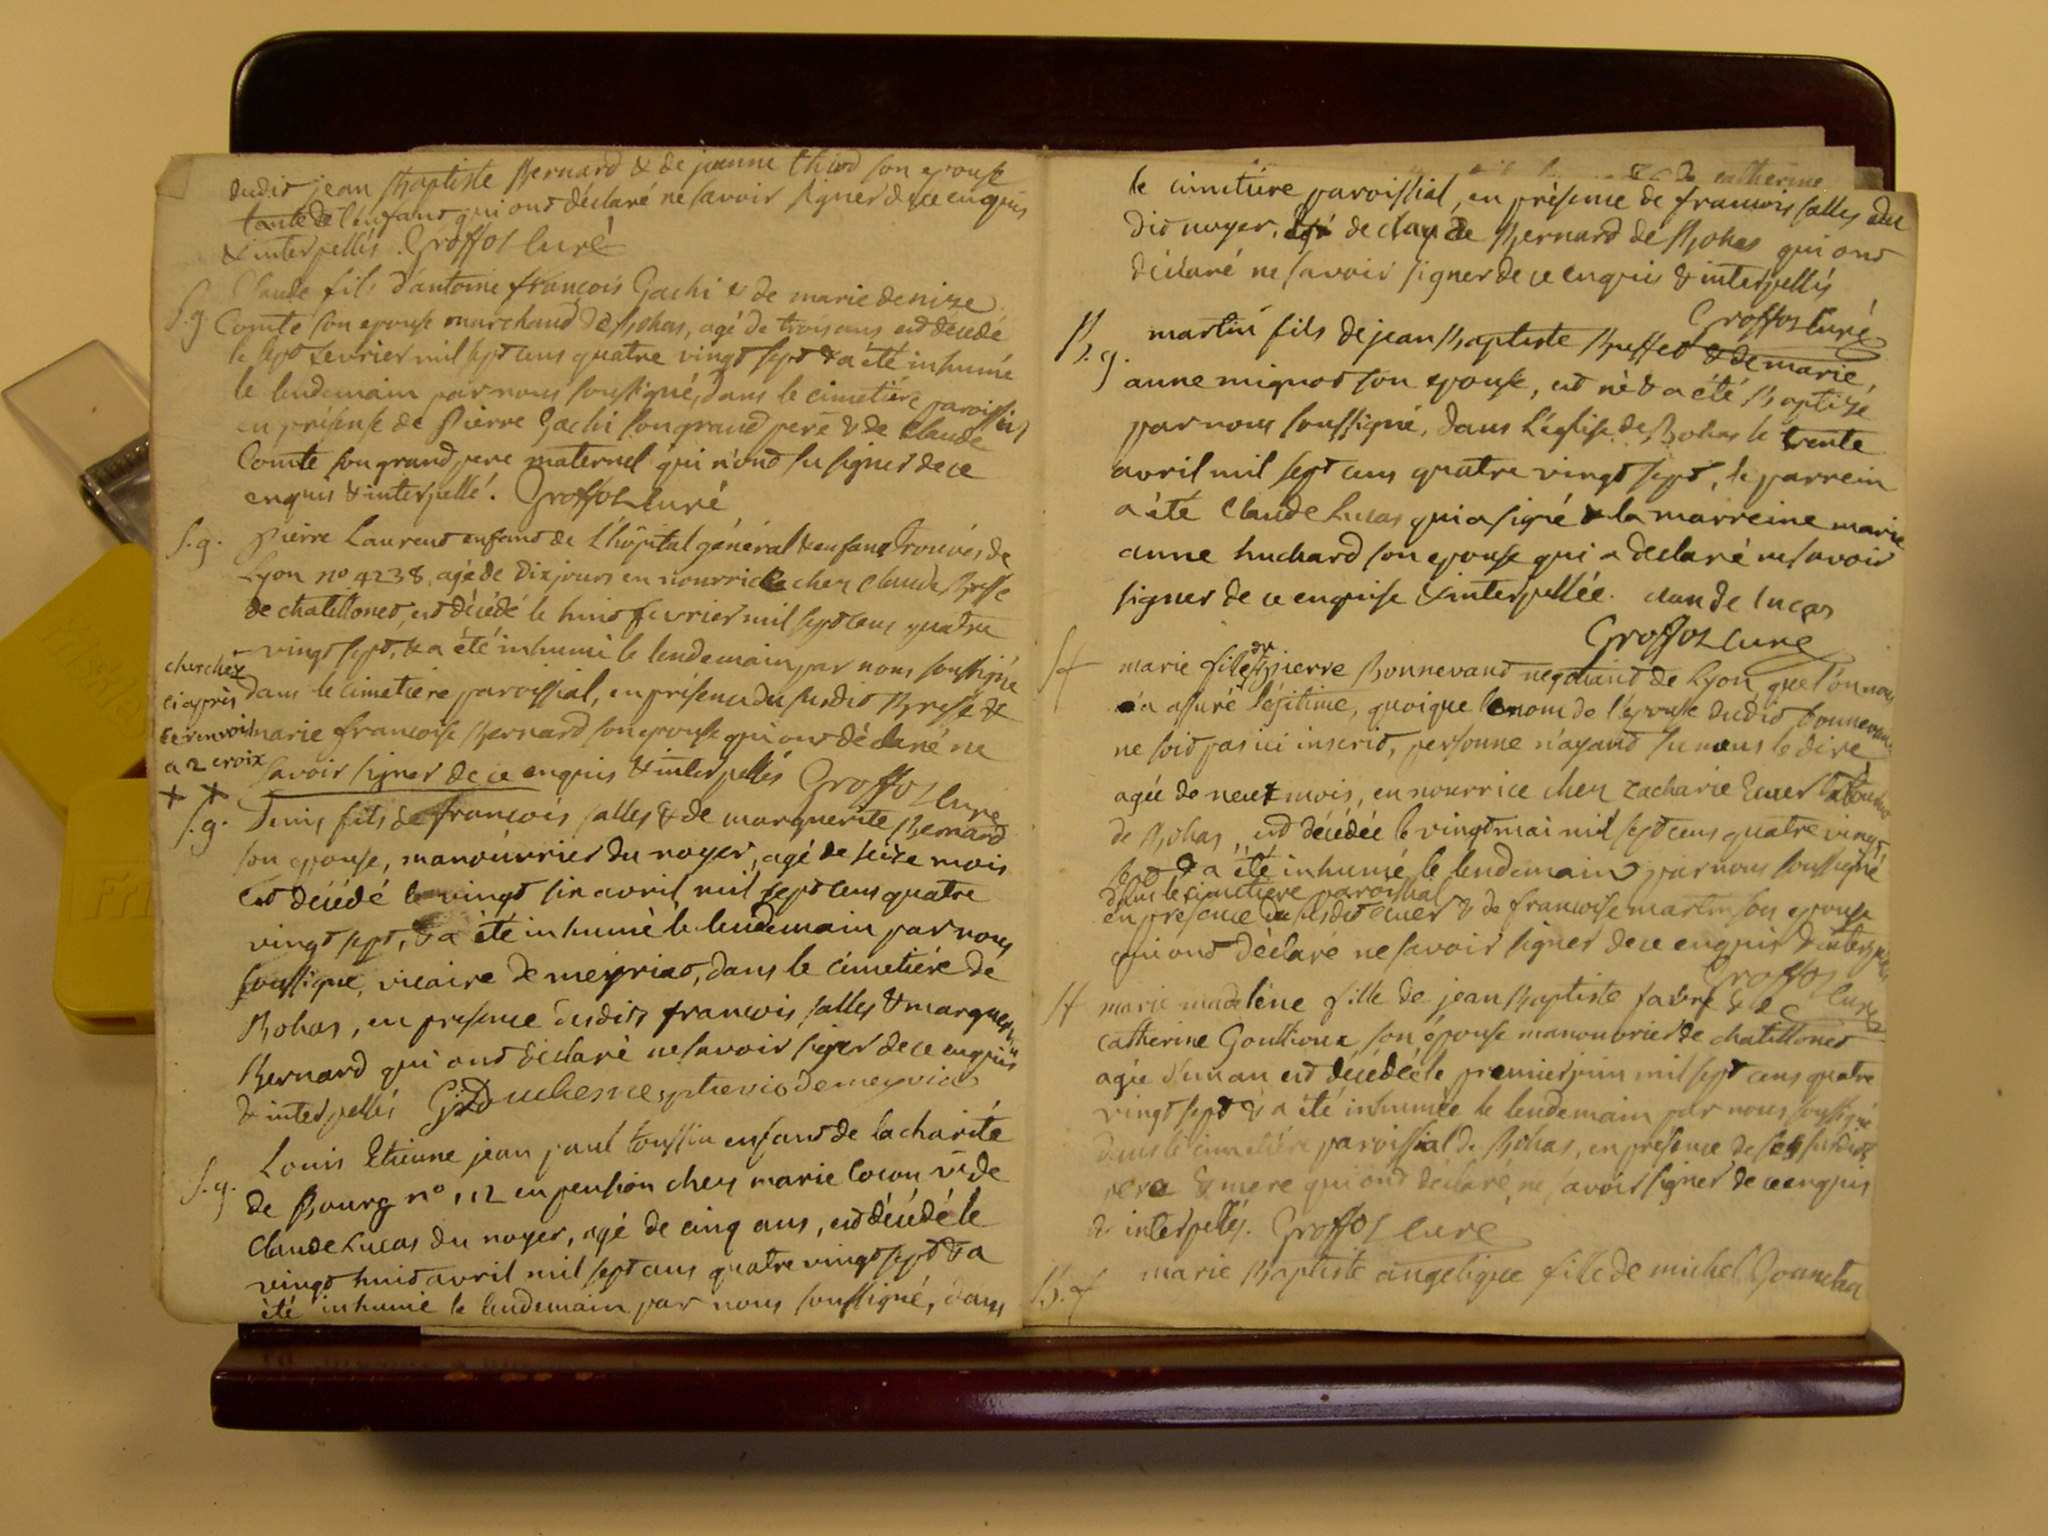 dudit jean Baptiste Bernard & de jeanne thivd son epouse
tante de l'enfant qui ont déclaré ne savoir signer de ce enquis
& interpellés. Groffoz curé
S.g. Claude fils d'antoine françois Gachi & de marie denize
Comte son epouse marchand de Bohas, agé de trois ans est décédé
le sept fevrier mil sept cens quatre vingt sept & a été inhumé
le lendemain par nous soussigné, dans le cimetiére paroissial
en présense de Pierre Gachi son grand pere & de Claude
Comte son grand pere maternel qui n'ont su signer de ce
enquis & interpellé. Groffoz curé
S.g. Pierre Laurent enfant de L'hôpital général & enfans trouvés de
Lyon no 4238, agé de dix jours en nourrice chez Claude Bresse
de chatillonet, est décédé le huit fevrier mil sept cens quatre
vingt sept, & a été inhumé le lendemain par nous soussigné
dans le cimetiere paroissial, en présence du susdit Bresse &
marie francoise Bernard son epouse qui ont déclaré ne
savoir signer de ce enquis & interpellés Groffoz curé
cherchez
ci après
le renvoi
a 2 croix
+ +
S.g. Denis fils de françois salles & de marguerite Bernard
son epouse, manouvrier du noyer, agé de seize mois
est décédé le vingt six avril mil sept cens quatre
vingt sept, & a été inhumé le lendemain par nous
soussigné, vicaire de meyriat, dans le cimetiére de
Bohas, en presence desdits francois salles & marguerite
Bernard qui ont déclaré ne savoir signer de ce enquis
& interpellés G: Duchesne ptre vic de meyriat
S.g. Louis Etienne jean paul toussin enfant de la charité
de Bourg no 112 en pension chez marie cocon ve de
Claude Lucas du noyer, agé de cinq ans, est décédé le
vingt huit avril mil sept cens quatre vingt sept & a
été inhumé le lendemain par nous soussigné, dans
le cimetiére paroissial, en présence de francois salles du
dit noyer, de claude Bernard de Bohas qui ont
déclaré ne savoir signer de ce enquis & interpellés
Groffoz curé
B.g. martin fils de jean Baptiste Buffet & de marie,
anne mignot son epouse, est né & a été Baptizé
par nous soussigné, dans l'église de Bohas le trente
avril mil sept cens quatre vingt sept, le parrein
a été Claude Lucas qui a signé & la marreine marie
anne huchard son epouse qui a déclaré ne savoir
signer de ce enquise & interpellée. claude lucas
Groffoz curé
S f marie fille de pierre Bonnevant negotiant de Lyon, que l'on nous
a assuré légitime, quoique le nom de l'épouse dudit bonnevant
ne soit pas ici inscrit, personne n'ayant su nous le dire
agée de neuf mois, en nourrice chez zacharie Ecuer
de Bohas, est décédée le vingt mai mil sept cens quatre vingt
sept & a été inhumé le lendemain par nous soussigné
dans le cimetiére paroissial
en presence du susdit Ecuer & de francoise martin son epouse
qui ont déclaré ne savoir signer de ce enquis & interpellés
Groffoz curé
S f marie madeléne fille de jean Baptiste favre & de
catherine Gouttoux son épouse manouvrier de chatillonet
agée d'un an est décédée le premier juin mil sept cens quatre
vingt sept & a été inhumée le lendemain par nous soussigné
dans le cimetiére paroissial de Bohas, en présence de ses susdits
pere & mere qui ont déclaré ne savoir signer de ce enquis
& interpellés. Groffoz curé
B. f marie Baptiste angelique fille de michel